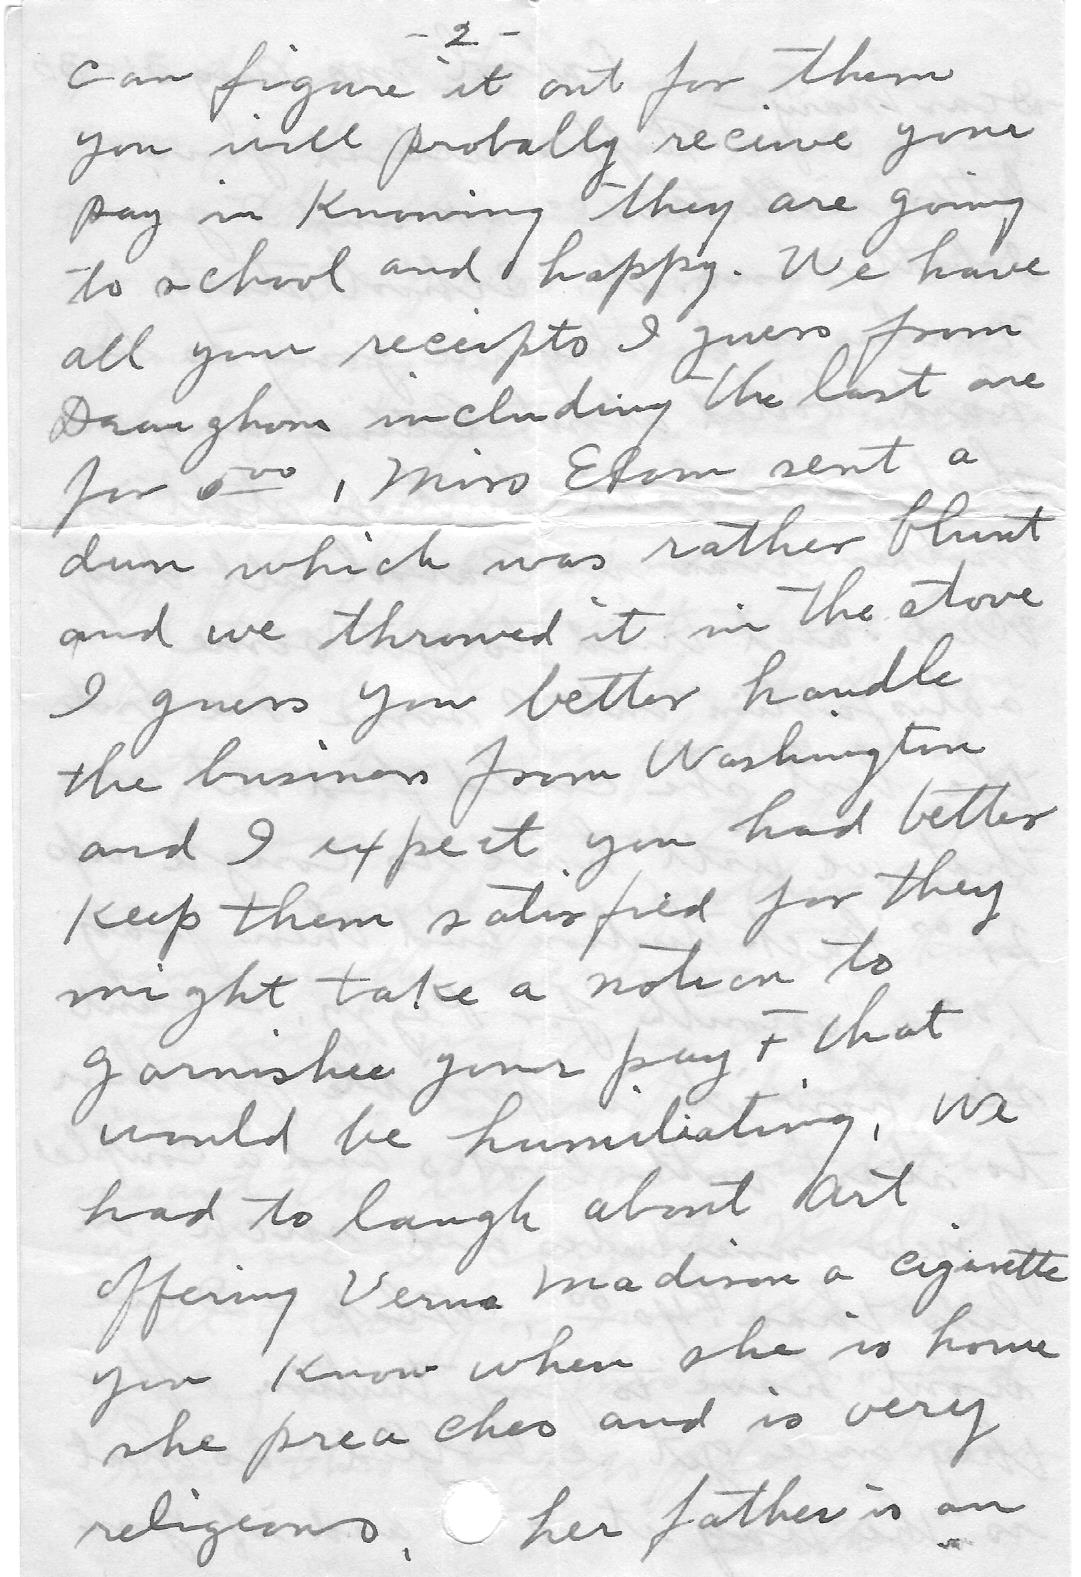 - 2 -
can figure it out for them
you will probally receive your
pay in Knowing they are going
to school and happy. We have
all your receipts I guess from
Draughons including the last one
for 5.00, Miss Elam sent a
dun which was rather blunt
and we throwed it in the stove
I guess you better handle
the business from Washington
and I expect you had better
Keep them satisfied for they
might take a notion to
garnishee your pay + that
would be humiliating, We
had to laugh about Art
offering Verna Madison a cigarette
you Know when she is home
she preaches and is very
religeous, her father is an